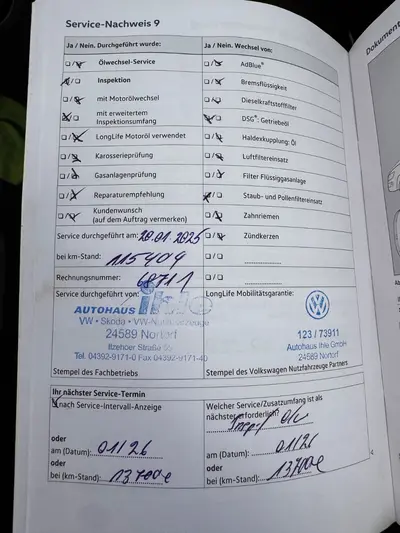 Service-Nachweis 9
Ja / Nein. Durchgeführt wurde:
Ölwechsel-Service
Inspektion
mit Motorölwechsel
mit erweitertem
Inspektionsumfang
LongLife Motoröl verwendet
Karosserieprüfung
Gasanlagenprüfung
Reparaturempfehlung
Kundenwunsch
(auf dem Auftrag vermerken)
Service durchgeführt am: 20.01.2025
bei km-Stand: 115409
Rechnungsnummer:
Service durchgeführt von:
AUTOHAUS ihle
VW • Skoda • VW-Nutzfahrzeuge
24589 Nortorf
Itzehoer Straße
Tel. 04392-9171-0 Fax 04392-9171-40
Stempel des Fachbetriebs
Ja / Nein. Wechsel von:
AdBlue®
Bremsflüssigkeit
Dieselkraftstofffilter
DSG®: Getriebeöl
Haldexkupplung: Öl
Luftfiltereinsatz
Filter Flüssiggasanlage
Staub- und Pollenfiltereinsatz
Zahnriemen
Zündkerzen
LongLife Mobilitätsgarantie:
123 / 73911
Autohaus Ihle GmbH
24589 Nortorf
Stempel des Volkswagen Nutzfahrzeuge Partners
Ihr nächster Service-Termin
nach Service-Intervall-Anzeige
oder
am (Datum): 01/26
oder
bei (km-Stand): 137000
Welcher Service/Zusatzumfang ist als
nächster erforderlich?
oder
am (Datum): 01/26
oder
bei (km-Stand): 137000
Dokument